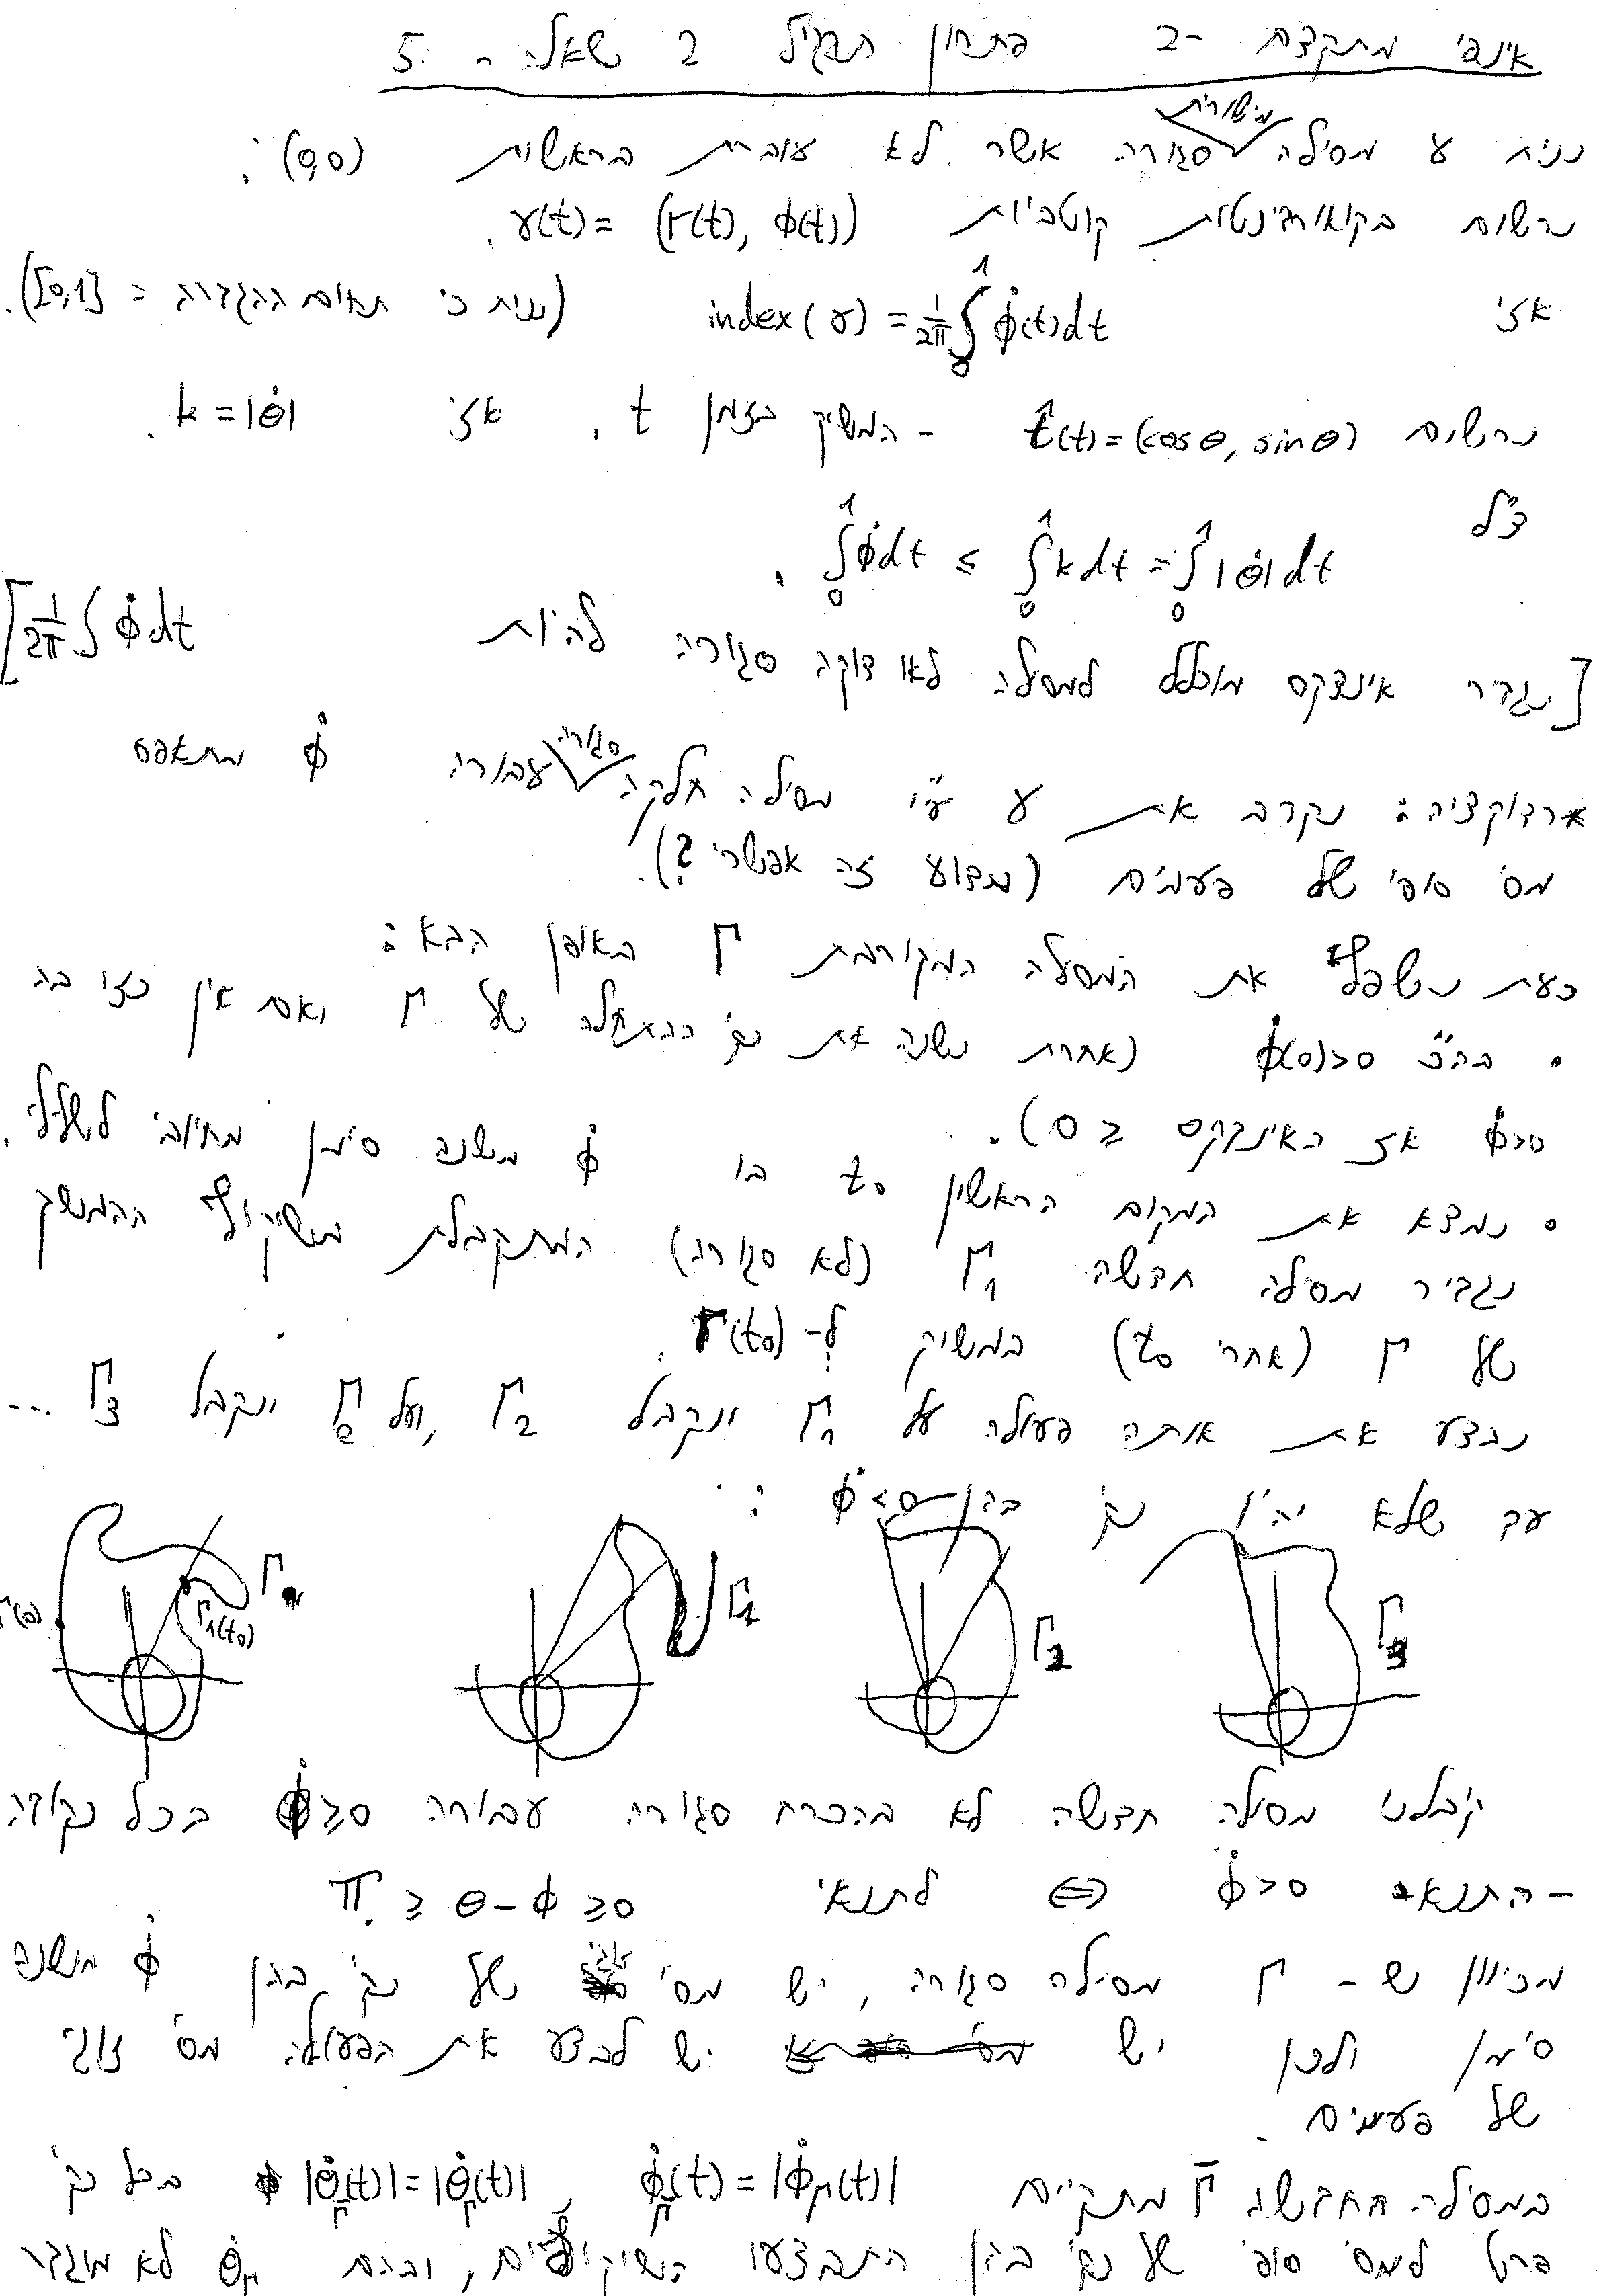 אינפי מתקדם -2 פתרון תרגיל 2 שאלה 5
נניח γ מסילה מישורית סגורה אשר לא עוברת בראשית (0,0):
נרשום בקואורדינטות קוטביות γ(t) = (r(t), φ(t)).
אזי index(γ) = 1/2π ∫₀¹ φ̇(t)dt (נניח כי תחום ההגדרה = [0,1]).
נרשום t̂(t)=(cosθ, sinθ) - המשיק בזמן t, אזי k=|θ̇|.
צ"ל
∫₀¹ φ̇dt ≤ ∫₀¹ kdt = ∫₀¹ |θ̇|dt.
[נגדיר אינדקס מוכלל למסילה לאו דוקה סגורה להיות 1/2π ∫φ̇dt]
רדוקציה: נקרב את γ ע"י מסילה חלקה סגורה עבורה φ̇ מתאפס
מס' סופי של פעמים (מדוע זה אפשרי?).
כעת נשפץ את המסילה המקורבת Γ באופן הבא:
• בה"כ φ̇(0)>0 (אחרת נשנה את נק' ההתחלה של Γ ואם אין כזו בה
φ̇>0 אז האינדקס ≤ 0).
• נמצא את המקום הראשון t₀ בו φ̇ משנה סימן מחיובי לשלילי.
נגדיר מסילה חדשה Γ₁ (לא סגורה) המתקבלת משיקוף ההמשך
של Γ (אחרי t₀) במשיק ל- Γ(t₀).
נבצע את אותה פעולה על Γ₁ ונקבל Γ₂, ועל Γ₂ נקבל Γ₃ ...
עד שלא יהיו נק' בהן φ̇<0:
Γ(0) Γ₁(t₀) Γ Γ₁ Γ₂ Γ₃
קיבלנו מסילה חדשה לא בהכרח סגורה עבורה φ̇≥0 בכל נקודה
- התנאי φ̇>0 ⇔ לתנאי π ≥ θ-φ ≥ 0.
מכיוון ש- Γ מסילה סגורה, יש מס' זוגי של נק' בהן φ̇ משנה
סימן ולכן יש לבצע את הפעולה מס' זוגי
של פעמים.
במסילה החדשה Γ̄ מתקיים φ̇_Γ̄(t) = |φ̇_Γ(t)|, |θ̇_Γ̄(t)| = |θ̇_Γ(t)| בכל נק'
פרט למס' סופי של נק' בהן התבצעו השיקופים, ובהם θ̇_Γ לא מוגדר